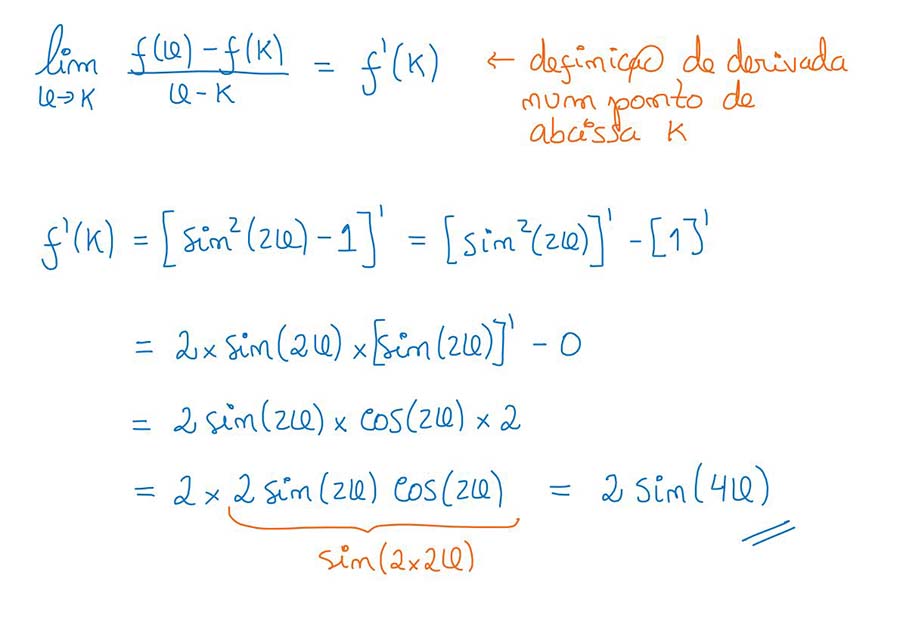 lim f(x) - f(k) / x - k = f'(k) ← definição de derivada
x→k
num ponto de
abcissa k
f'(k) = [sin²(2x) - 1]' = [sin²(2x)]' - [1]'
= 2 × sin(2x) × [sin(2x)]' - 0
= 2 sin(2x) × cos(2x) × 2
= 2 × 2 sin(2x) cos(2x) = 2 sin(4x)
sin(2×2x)